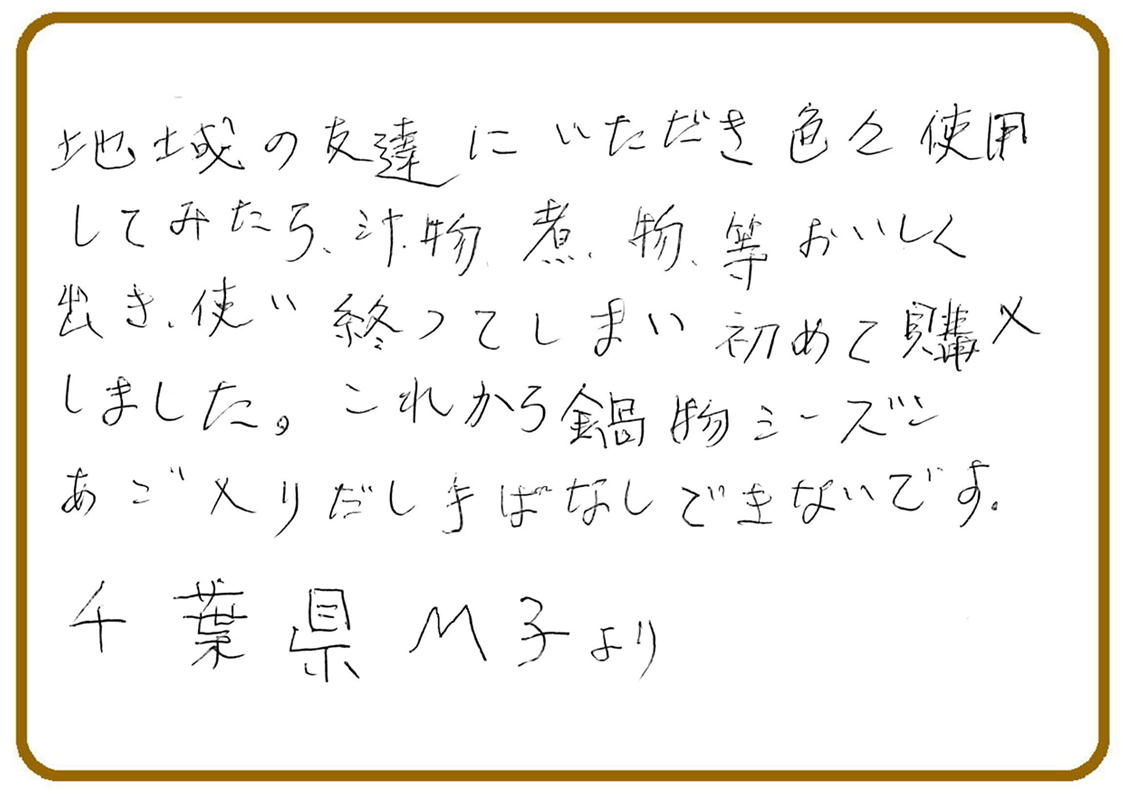 地域の友達にいただき色々使用
してみたら、汁物、煮物、等おいしく
出き、使い終ってしまい初めて購入
しました。これから鍋物シーズン
あご入りだし手ばなしできないです。
千葉県 M子より